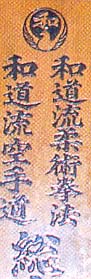 和道流柔術拳法
和道流空手道